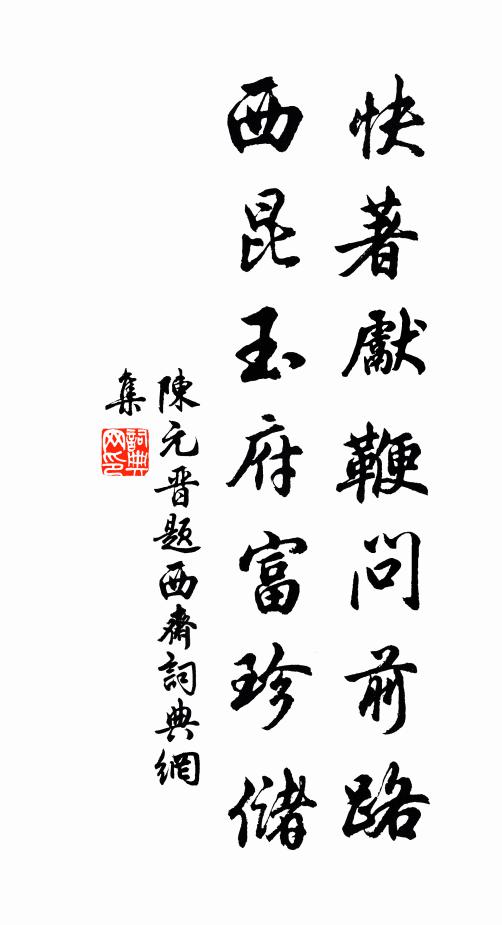 快著獻鞭問前路
西昆玉府富珍儲
陳元晉題西齋詞典網
集
詞典
网印